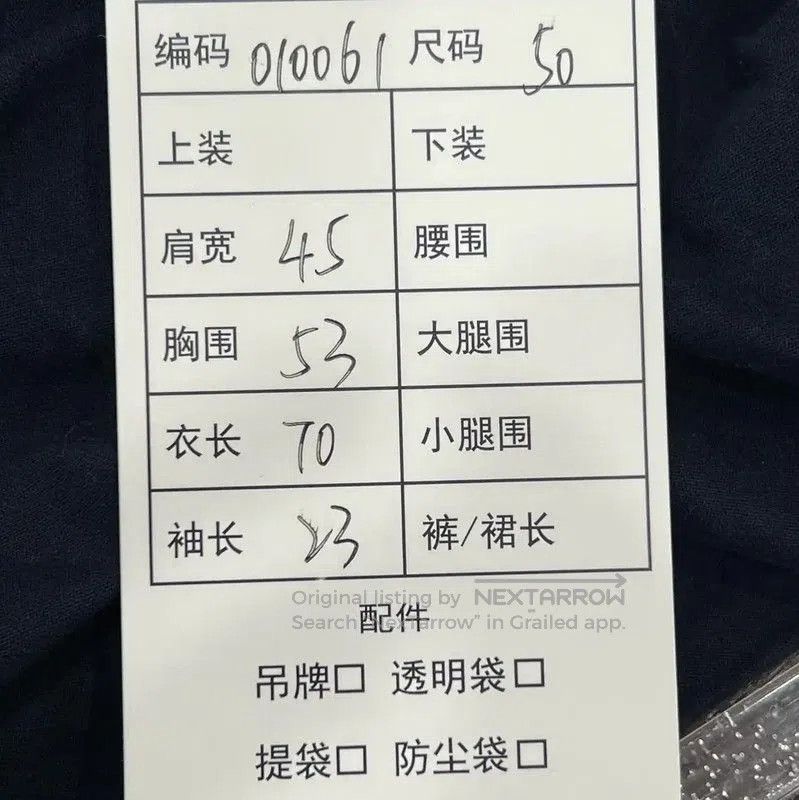 编码 010061 尺码 50
上装 下装
肩宽 45 腰围
胸围 53 大腿围
衣长 70 小腿围
袖长 23 裤/裙长
Original listing by NEXTARROW
配件
Search "NexTarrow" in Grailed app.
吊牌□ 透明袋□
提袋□ 防尘袋□